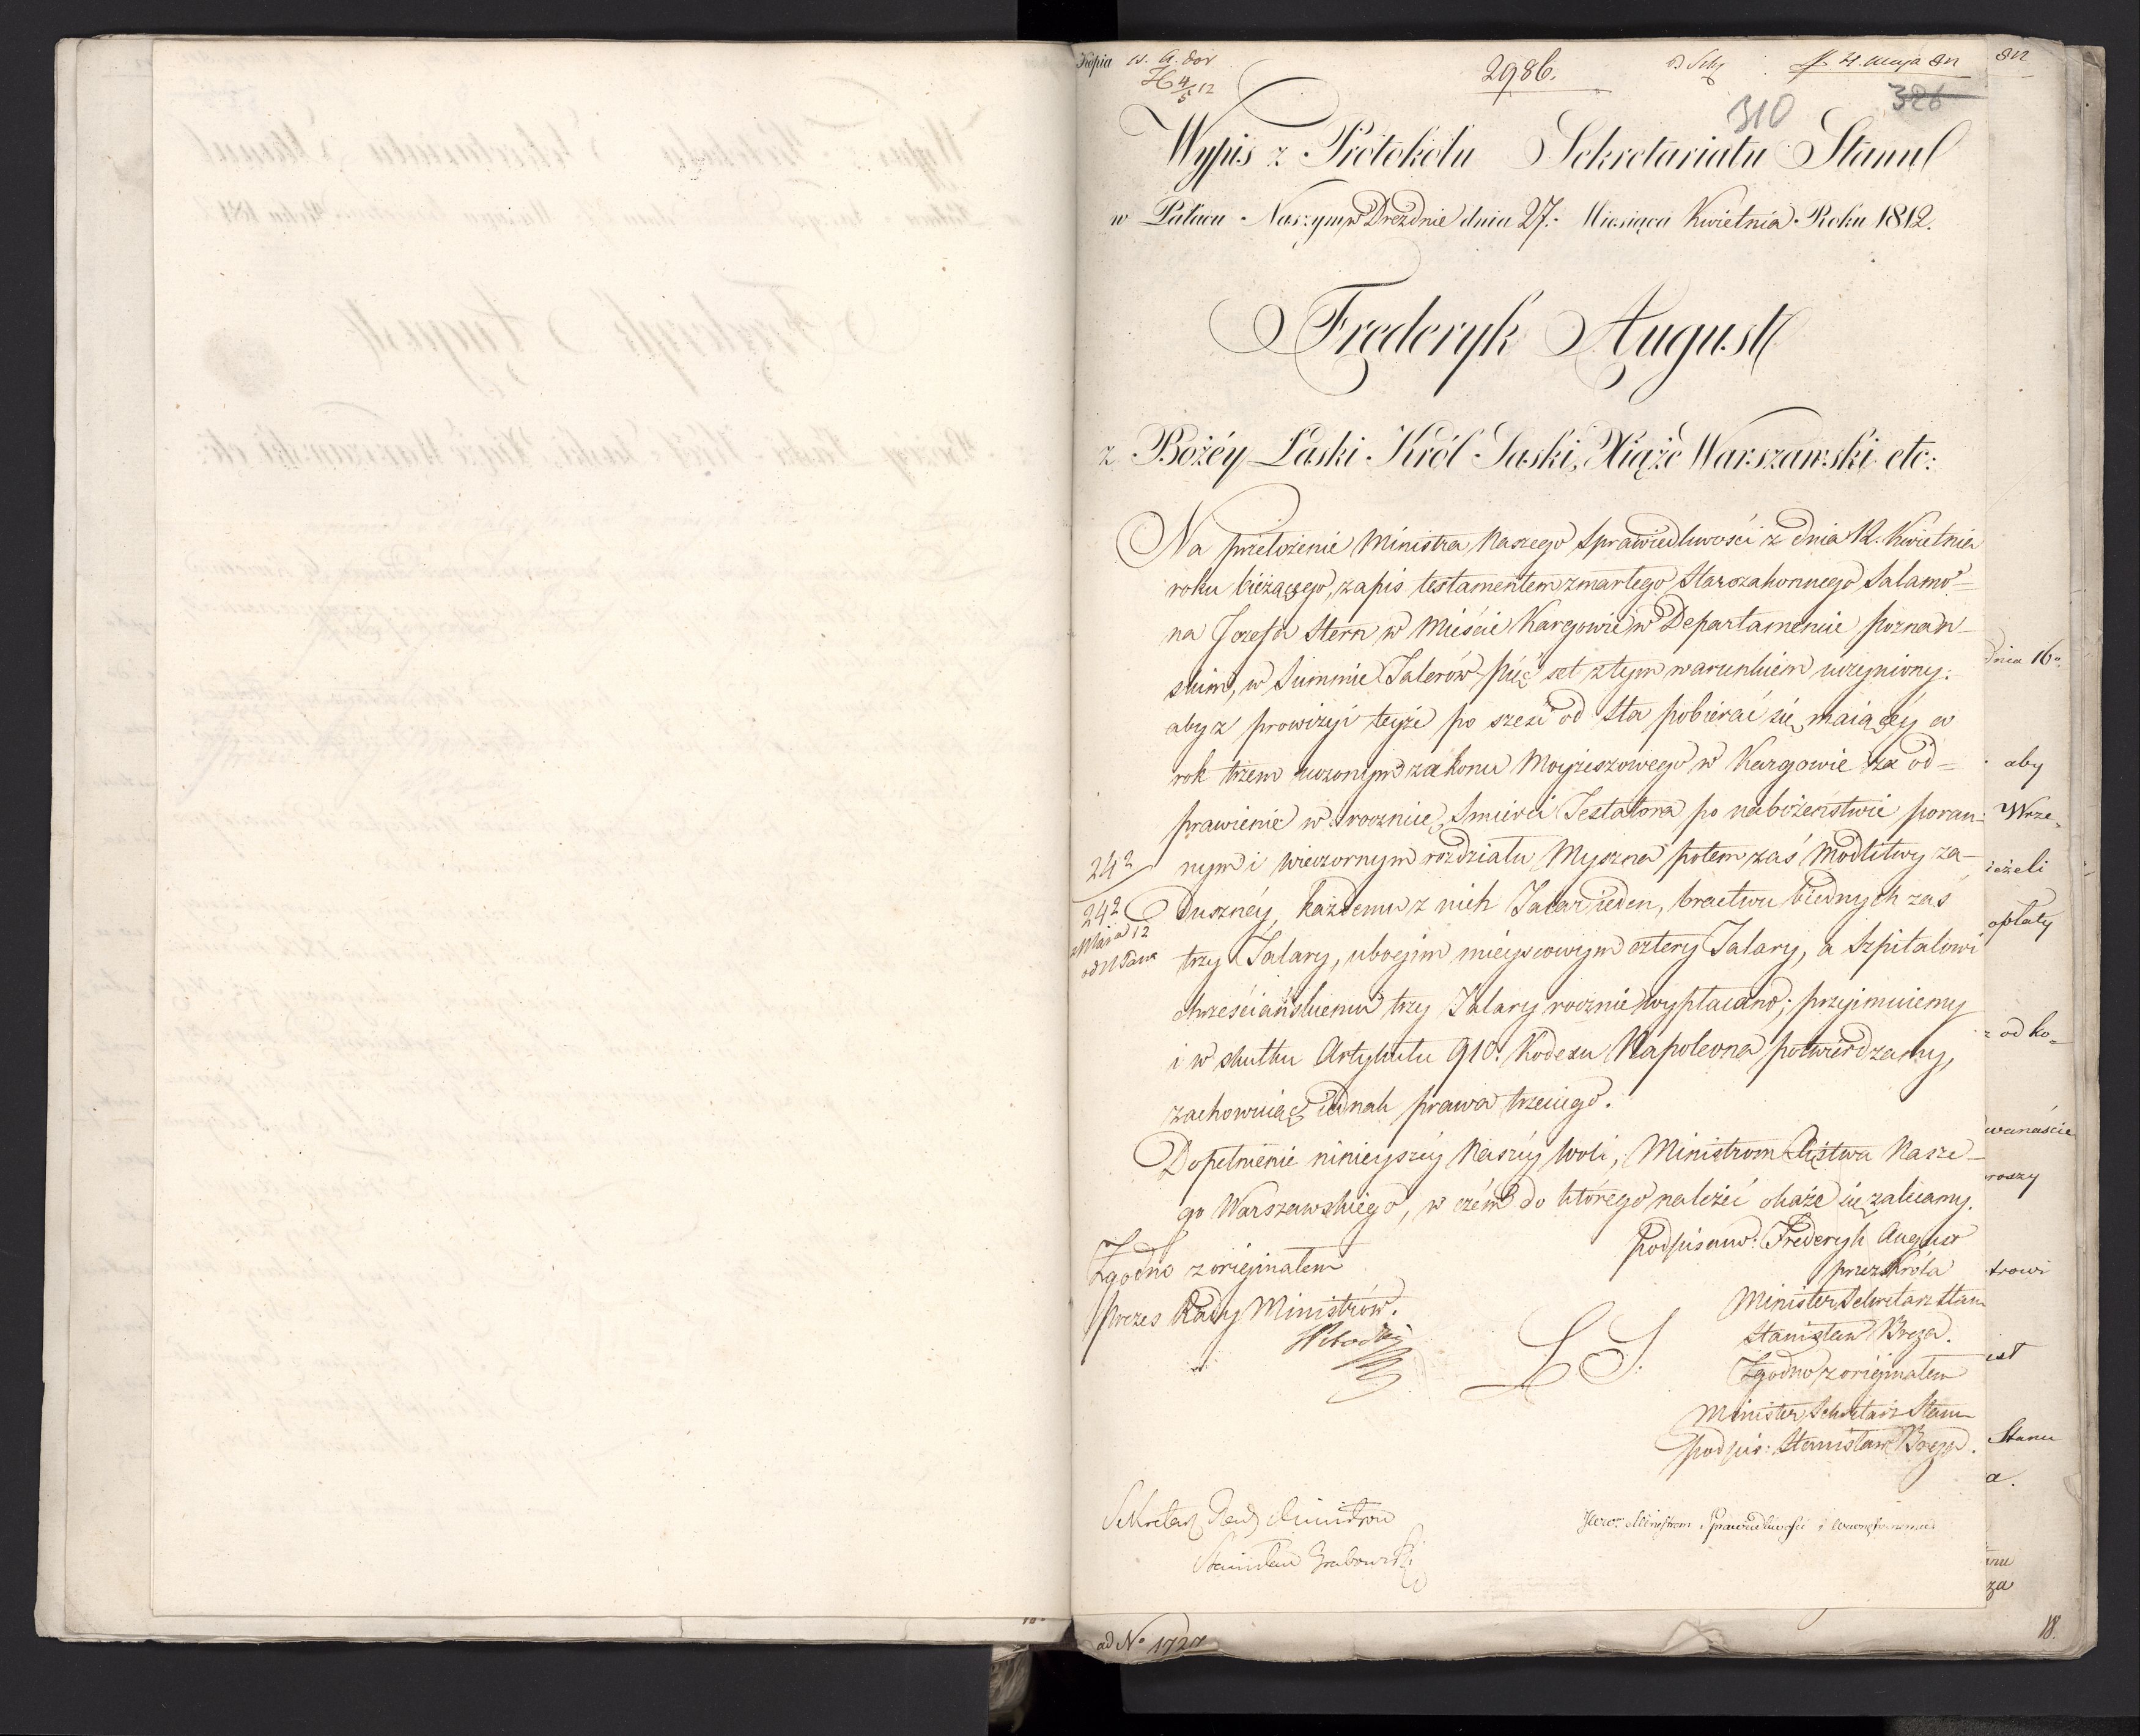 Kopia
2986.
4. Maja 812
812
310
326
Wypis z Protokółu Sekretariatu Stanu
w Pałacu Naszym w Dreźdnie dnia 27. Miesiąca Kwietnia Roku 1812.
Frederyk August
z Bożéy Łaski Król Saski, Xiąże Warszawski etc:
Na przełożenie Ministra Naszego Sprawiedliwości z dnia 12. Kwietnia
roku bieżącego, zapis testamentem zmarłego Starozakonnego Salamo=
na Jozefa Stern w Mieście Kargowie w Departamencie poznań-
skim, w Summie Talerów pięć set z tym warunkiem uczyniony:
aby z prowizyi teyże po sześć od sta pobierać się maiącéy co
rok trzem uczonym zakonu Moyżeszowego w Kargowie za od=
prawienie w rocznicę Smierci Testatora po nabożeństwie poran-
nym i wieczornym rozdziału Myszna potem zaś Modlitwy za-
dusznéy, każdemu z nich Talar ieden, bractwu biednych zaś
trzy Talary, ubogim mieyscowym cztery Talary, a Szpitalowi
chrześciańskiemu trzy Talary rocznie wypłacano; przyimuiemy
i w skutku Artykułu 910. Kodexu Napoleona potwierdzamy,
zachowuiąc iednak prawa trzeciego.
Dopełnienie ninieyszéy Naszéy woli, Ministrom Xięstwa Nasze-
go Warszawskiego, w czém do którego należéć okaże się zalecamy.
242
242
Maja 12
oddana
Podpisano: Frederyk August
przez Króla
Minister Sekretarz Stanu
Stanisław Breza.
Zgodno z originałem
Minister Sekretarz Stanu
podpis: Stanisław Breza.
Zgodno z originałem
Prezes Rady Ministrów.
L S.
Sekretarz Rady Ministrów
Stanisław Grabowski
JWW. Ministrom Sprawiedliwości i Wewnętrznemu
ad No 1727
dnia 16o
aby
Wrze=
ieżeli
opłaty
z od ko=
wanaście
roszy
trowi
iest
Stanu
a.
anu
za
18.